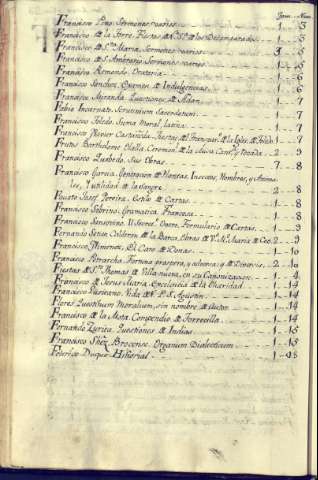 Tom. Num.
Francisco Pons, Sermones varios 1 - 5
Francisco de la Torre, Fiestas de N. S.ª de los Desamparados 1 - 5
Francisco de S.ta Maria, Sermones varios 3 - 5
Francisco de S. Sermones varios 1 - 5
Francisco Oratoria 1 - 6
Francisco Sanchez, de Indulgencias 1 - 6
Francisco Miranda, Questiones de Adan 1 - 7
Fabio Incarnato, Scrutinium Sacerdotum 1 - 7
Francisco Toledo, Suma Moral, latina 1 - 7
Francisco Xavier Castañeda, Fiestas de en la Igles. de Toledo 1 - 7
Frutos Bartholome Olalla, Ceremon.l de la Misa Cant.ª y Rezada 2 - 9
Francisco Quebedo, Sus Obras 7 - 8
Francisco Garcia, de Plantas, Insectos, Hombres, y Anima-
les, y utilidad de la Sangre 2 - 8
Fausto Josef Pereira, Estilo de Cartas 1 - 8
Francisco Sobrino, Gramatica Francesa 1 - 8
Francisco Sansovino, Il Secret.º overo Formulario de Cartas 1 - 9
Fernando Setien Calderon de la Barca, de V. M. Maria de 2 - 9
Francisco Ximenez, El Caro de Donas 1 - 10
Francisco Petrarcha, Fortuna prospera, y adversa, de Democr. 2 - 10
Fiestas de S.to Thomas de Villanueva, en su Canonizacion 1 - 4
Francisco de Jesus Maria, Excelencia de la Charidad 1 - 14
Francisco Vida de N. P. S. Agustin 1 - 14
Flores Questium Moralium, sin nombre de Autor 1 - 14
Francisco de la Mota, Compendio de Torrecilla 1 - 14
Fernando Zurita, Questiones de Indias 1 - 15
Francisco Shēz Brocense, Organum Dialecticum 1 - 15
Federico Duque Historial 1 - 18